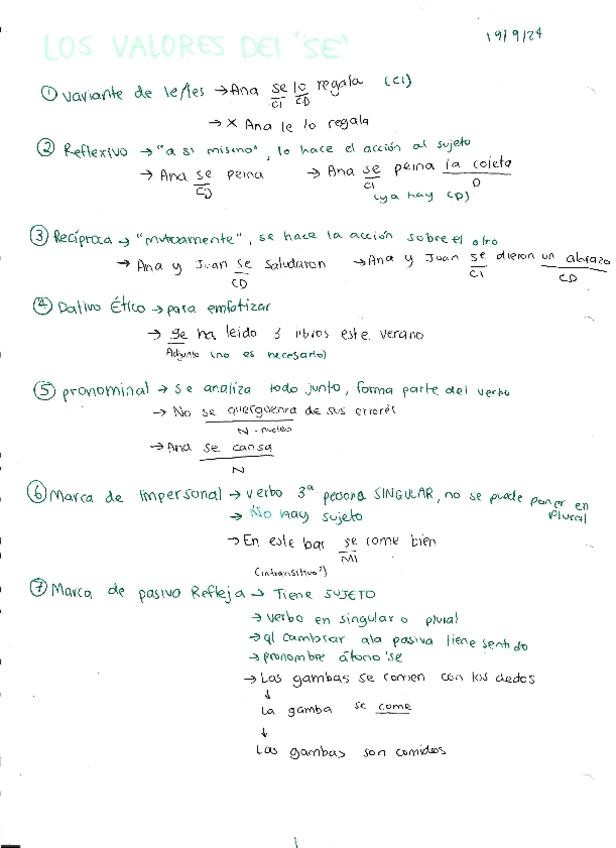 LOS VALORES DEL 'SE'
19/9/24
① variante de le/les → Ana se lo regala (CI)
CI CD
→ X Ana le lo regala
② Reflexivo → "a si mismo", lo hace el acción al sujeto
→ Ana se peina → Ana se peina la coleta
CD CI D
(ya hay CD)
③ Recíproca → "mutuamente", se hace la acción sobre el otro
→ Ana y Juan se saludaron → Ana y Juan se dieron un abrazo
CD CI CD
④ Dativo Ético → para emfatizar
→ Se ha leido 3 libros este verano
Adjunto (no es necesario)
⑤ pronominal → se analiza todo junto, forma parte del verbo
→ No se averguenza de sus errores
N - nucleo
→ Ana se cansa
N
⑥ Marca de impersonal → verbo 3ª persona SINGULAR, no se puede poner en plural
→ No hay sujeto
→ En este bar se come bien
MI
(intransitivo?)
⑦ Marca de pasiva Refleja → Tiene SUJETO
→ verbo en singular o plural
→ al cambiar a la pasiva tiene sentido
→ pronombre átono 'se
→ Las gambas se comen con los dedos
↓
La gamba se come
↓
Las gambas son comidas